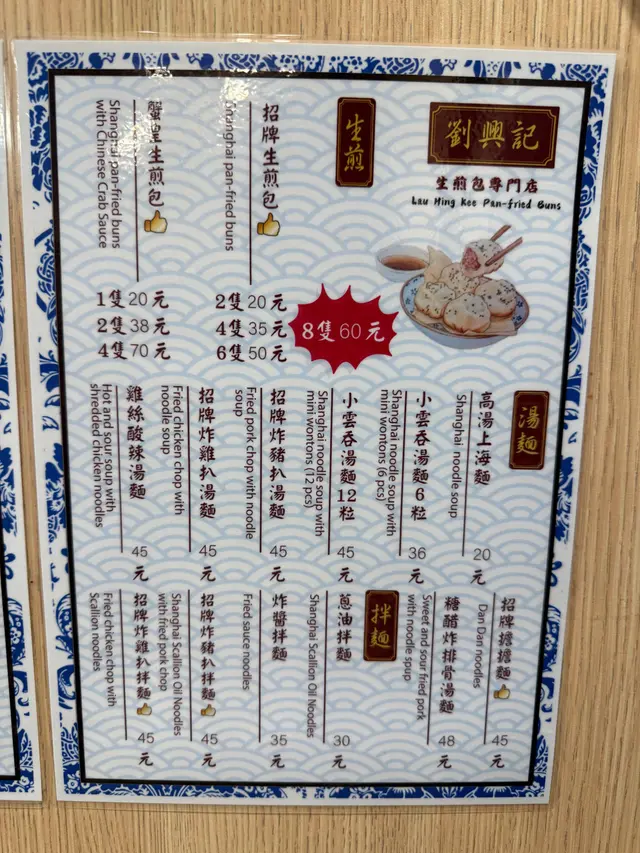 劉興記
生煎包專門店
Lau Hing Kee Pan-fried Buns
生煎
招牌生煎包
Shanghai pan-fried buns
2隻20元
4隻35元
6隻50元
8隻60元
蟹皇生煎包
Shanghai pan-fried buns
with Chinese Crab Sauce
1隻20元
2隻38元
4隻70元
湯麵
高湯上海麵
Shanghai noodle soup
20元
小雲吞湯麵6粒
Shanghai noodle soup with
mini wontons (6 pcs)
36元
小雲吞湯麵12粒
Shanghai noodle soup with
mini wontons (12 pcs)
45元
招牌炸豬扒湯麵
Fried pork chop with noodle
soup
45元
招牌炸雞扒湯麵
Fried chicken chop with
noodle soup
45元
雞絲酸辣湯麵
Hot and sour soup with
shredded chicken noodles
45元
招牌擔擔麵
Dan Dan noodles
45元
糖醋炸排骨湯麵
Sweet and sour fried pork
with noodle soup
48元
拌麵
蔥油拌麵
Shanghai Scallion Oil Noodles
30元
炸醬拌麵
Fried sauce noodles
35元
招牌炸豬扒拌麵
Shanghai Scallion Oil Noodles
with fried pork chop
45元
招牌炸雞扒拌麵
Fried chicken chop with
Scallion noodles
45元